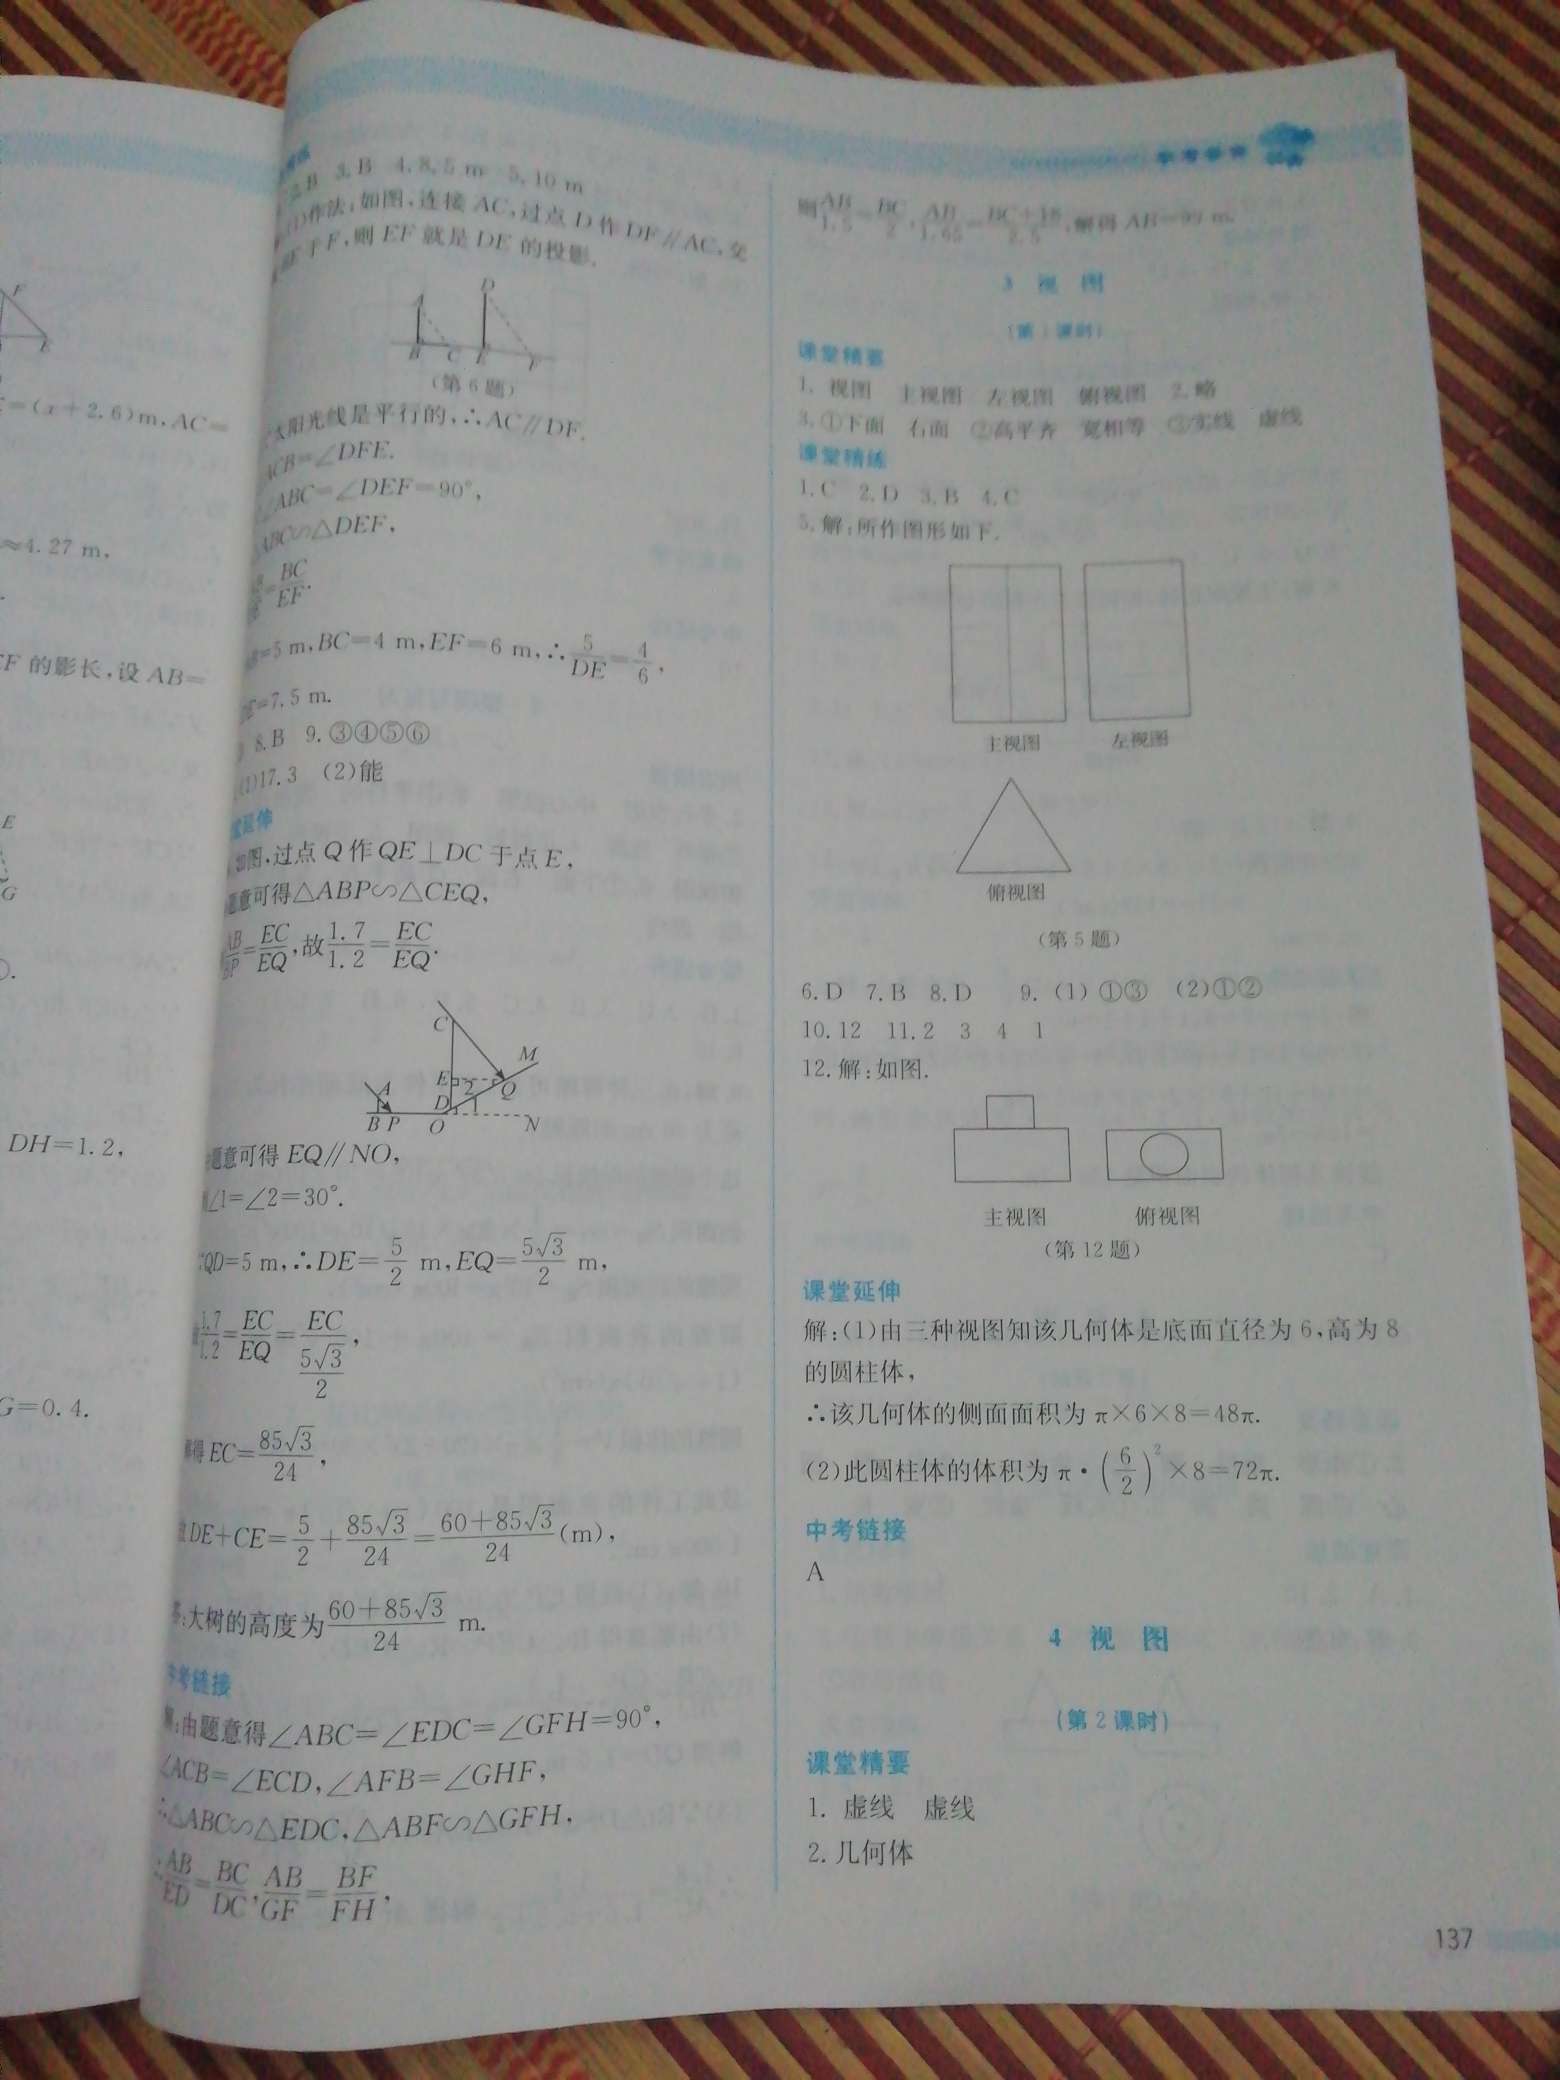 F
E
=(x+2.6)m,AC=
≈4.27 m,
F 的影长,设 AB=
E
G
DH=1.2,
G=0.4.
2.B 3.B 4.8.5 m 5.10 m
(1)作法:如图,连接 AC,过点 D 作 DF∥AC,交
BE 于 F,则 EF 就是 DE 的投影.
D
A
B C E F
(第 6 题)
太阳光线是平行的,∴AC∥DF.
ACB=∠DFE.
∠ABC=∠DEF=90°,
ABC∽△DEF,
=BC/EF.
=5 m,BC=4 m,EF=6 m,∴5/DE=4/6,
=7.5 m.
8.B 9.③④⑤⑥
(1)17.3 (2)能
延伸
如图,过点 Q 作 QE⊥DC 于点 E,
题意可得△ABP∽△CEQ,
AB/BP=EC/EQ,故1.7/1.2=EC/EQ.
C
M
A E 2 Q
D 1
B P O N
题意可得 EQ∥NO,
∠1=∠2=30°.
QD=5 m,∴DE=5/2 m,EQ=5√3/2 m,
1.7/1.2=EC/EQ=EC/(5√3/2),
得 EC=85√3/24,
DE+CE=5/2+85√3/24=(60+85√3)/24(m),
:大树的高度为(60+85√3)/24 m.
中考链接
:由题意得∠ABC=∠EDC=∠GFH=90°,
∠ACB=∠ECD,∠AFB=∠GHF,
∴△ABC∽△EDC,△ABF∽△GFH,
AB/ED=BC/DC,AB/GF=BF/FH,
则AB/1.5=BC/2,AB/1.65=(BC+18)/2.5,解得 AB=99 m.
3 视 图
(第 1 课时)
课堂精要
1. 视图 主视图 左视图 俯视图 2.略
3.①下面 右面 ②高平齐 宽相等 ③实线 虚线
课堂精练
1.C 2.D 3.B 4.C
5.解:所作图形如下.
主视图 左视图
俯视图
(第 5 题)
6.D 7.B 8.D 9.(1)①③ (2)①②
10.12 11.2 3 4 1
12.解:如图.
主视图 俯视图
(第 12 题)
课堂延伸
解:(1)由三种视图知该几何体是底面直径为 6,高为 8
的圆柱体,
∴该几何体的侧面面积为 π×6×8=48π.
(2)此圆柱体的体积为 π·(6/2)²×8=72π.
中考链接
A
4 视 图
(第 2 课时)
课堂精要
1. 虚线 虚线
2.几何体
137